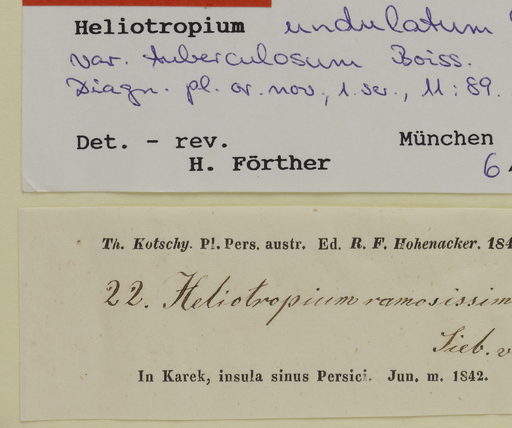 Heliotropium undulatum
var. tuberculosum Boiss.
Diagn. pl. or. nov., 1. ser., 11: 89.
Det. - rev. München
H. Förther 6
Th. Kotschy. Pl. Pers. austr. Ed. R. F. Hohenacker. 184
22. Heliotropium ramosissim
Sieb. v
In Karek, insula sinus Persici. Jun. m. 1842.